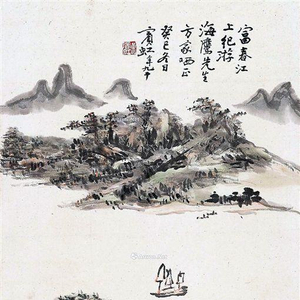 富春江
上纪游
海鹰先生
方家哂正
癸巳冬日
宾虹年九十